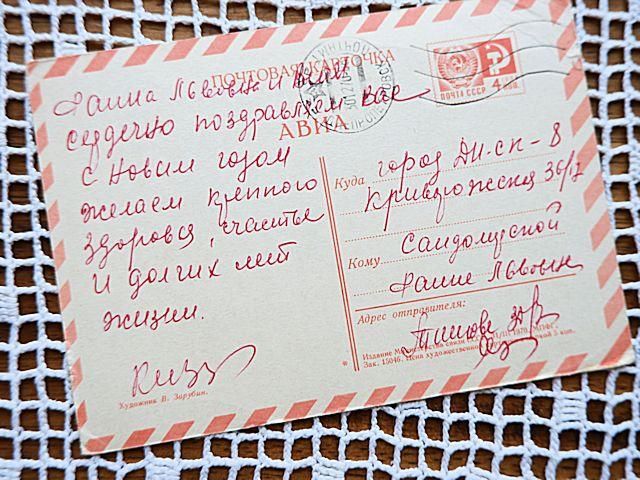 ПОЧТОВАЯ КАРТОЧКА
АВИА
ПОЧТА СССР
4
КОП.
Фаина Львовна и
сердечно поздравляем вас
с Новым годом
желаем крепкого
здоровья, счастье
и долгих лет
жизни.
Художник В. Зарубин.
Куда город Дн-ск-8
Криворожская 30/17
Кому Сандомирской
Фаине Львовне
Адрес отправителя:
Издание Министерства связи СССР 1970. МПФГ.
Зак. 15046. Цена художественной с маркой 5 коп.